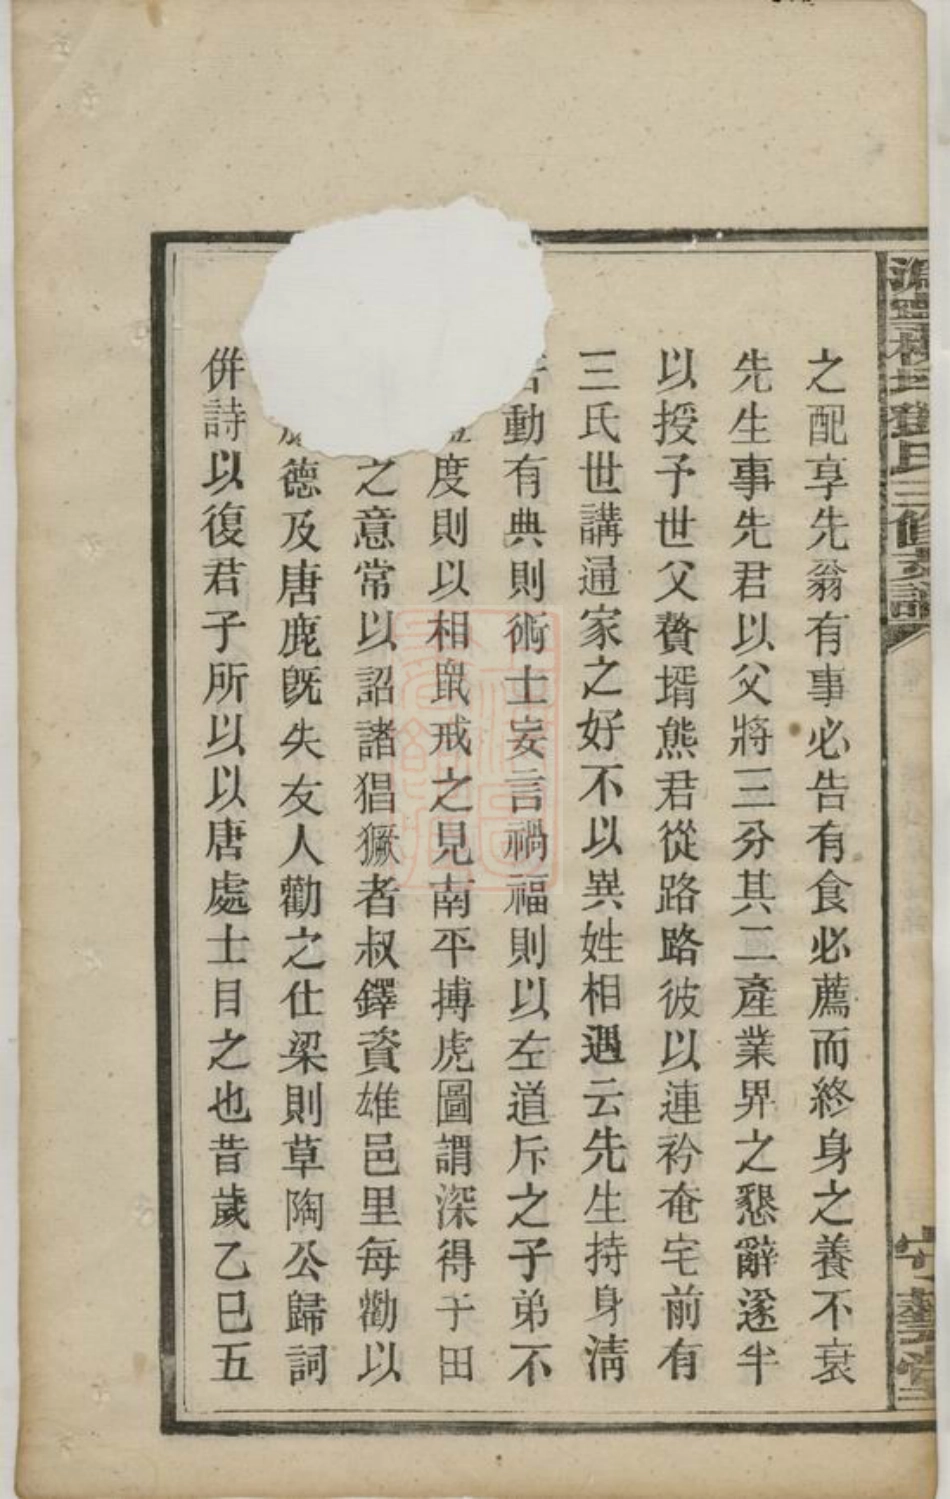 之配享先翁有事必告有食必薦而終身之養不衰
先生事先君以父將三分其二產業界之懇辭遂半
以授予世父贅壻熊君從路路彼以連衿奄宅前有
三氏世講通家之好不以異姓相遇云先生持身淸
動有典則術士妄言禍福則以左道斥之子弟不
度則以相鼠戒之見南平搏虎圖謂深得于田
之意常以詔諸猖獗者叔鐸資雄邑里每勸以
德及唐鹿旣失友人勸之仕梁則草陶公歸詞
倂詩以復君子所以以唐處士目之也昔歲乙巳五